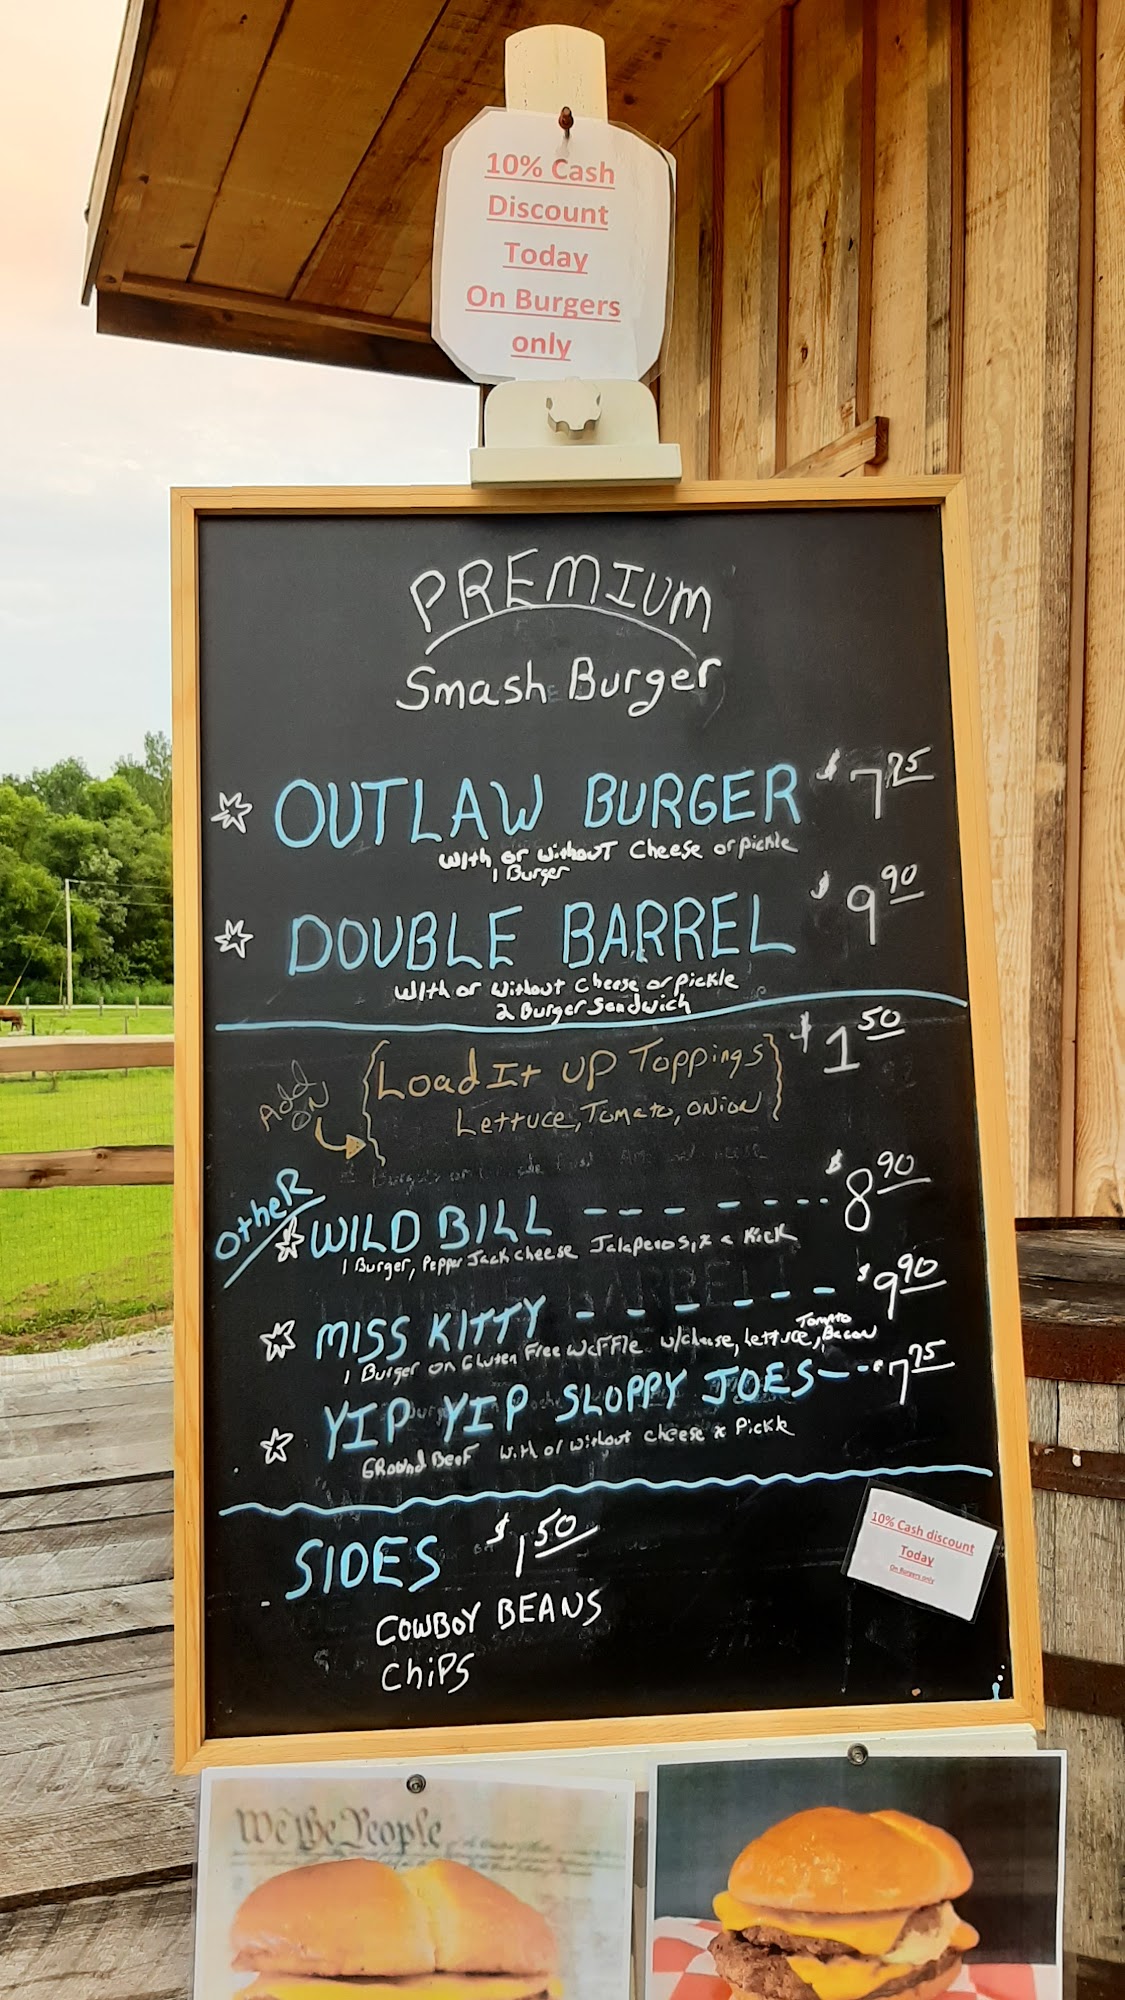 10% Cash
Discount
Today
On Burgers
only
PREMIUM
Smash Burger
OUTLAW BURGER $7.75
With or Without Cheese or pickle
1 Burger
DOUBLE BARREL $9.90
With or Without Cheese or pickle
2 Burger Sandwich
Add
ON
Load It UP Toppings $1.50
Lettuce, Tomato, ONION
OtheR
WILD BILL ------- $8.90
1 Burger, Pepper Jack cheese Jalapenos, & a Kick
MISS KITTY ------ $9.90
1 Burger on Gluten Free Waffle w/cheese, Lettuce, Tomato, Bacon
YIP YIP SLOPPY JOES--- $7.75
GRound Beef With or without cheese & Pickle
SIDES $1.50
COWBOY BEANS
ChiPS
10% Cash discount
Today
On Burgers only
We the People